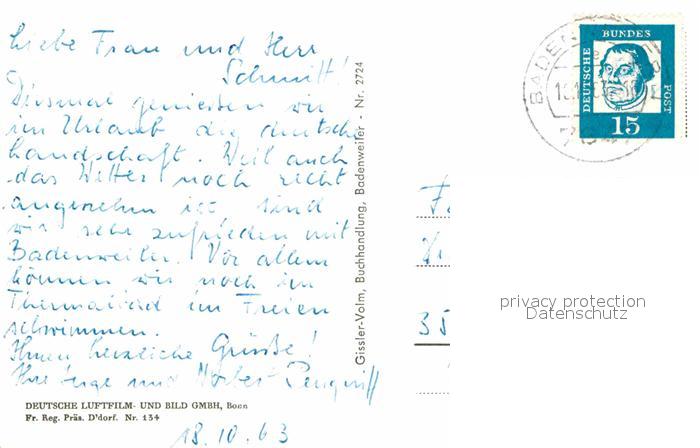 Liebe Frau und Herr
Schmitt!
Diesmal genießen wir
im Urlaub die deutsche
Landschaft. Weil auch
das Wetter noch recht
angenehm ist, sind
wir sehr zufrieden mit
Badenweiler. Vor allem
können wir noch im
Thermalbad im Freien
schwimmen.
Ihnen herzliche Grüße!
Ihre und Norbert
DEUTSCHE LUFTFILM- UND BILD GMBH, Bonn
Fr. Reg. Präs. D'dorf. Nr. 134
18.10.63
Gissler-Volm, Buchhandlung, Badenweiler - Nr. 2724
BADEN
DEUTSCHE
BUNDES
POST
15
35
privacy protection
Datenschutz